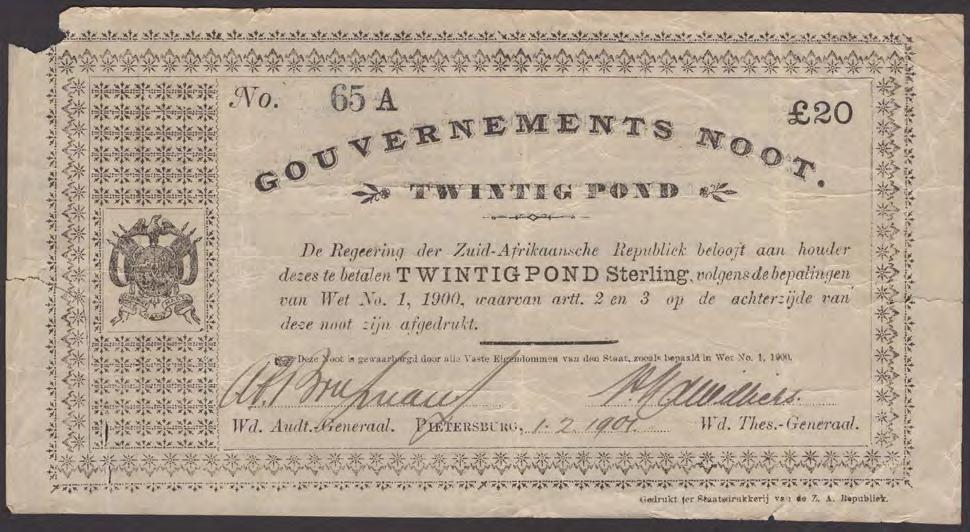 No. 65 A £20
GOUVERNEMENTS NOOT.
TWINTIG POND
De Regeering der Zuid-Afrikaansche Republiek belooft aan houder
dezes te betalen TWINTIG POND Sterling, volgens de bepalingen
van Wet No. 1, 1900, waarvan artt. 2 en 3 op de achterzijde van
deze noot zijn afgedrukt.
Deze Noot is gewaarborgd door alle Vaste Eigendommen van den Staat, zooals bepaald in Wet No. 1, 1900.
Wd. Audt.-Generaal. PIETERSBURG, 1.2.1901. Wd. Thes.-Generaal.
Gedrukt ter Staatsdrukkerij van de Z. A. Republiek.